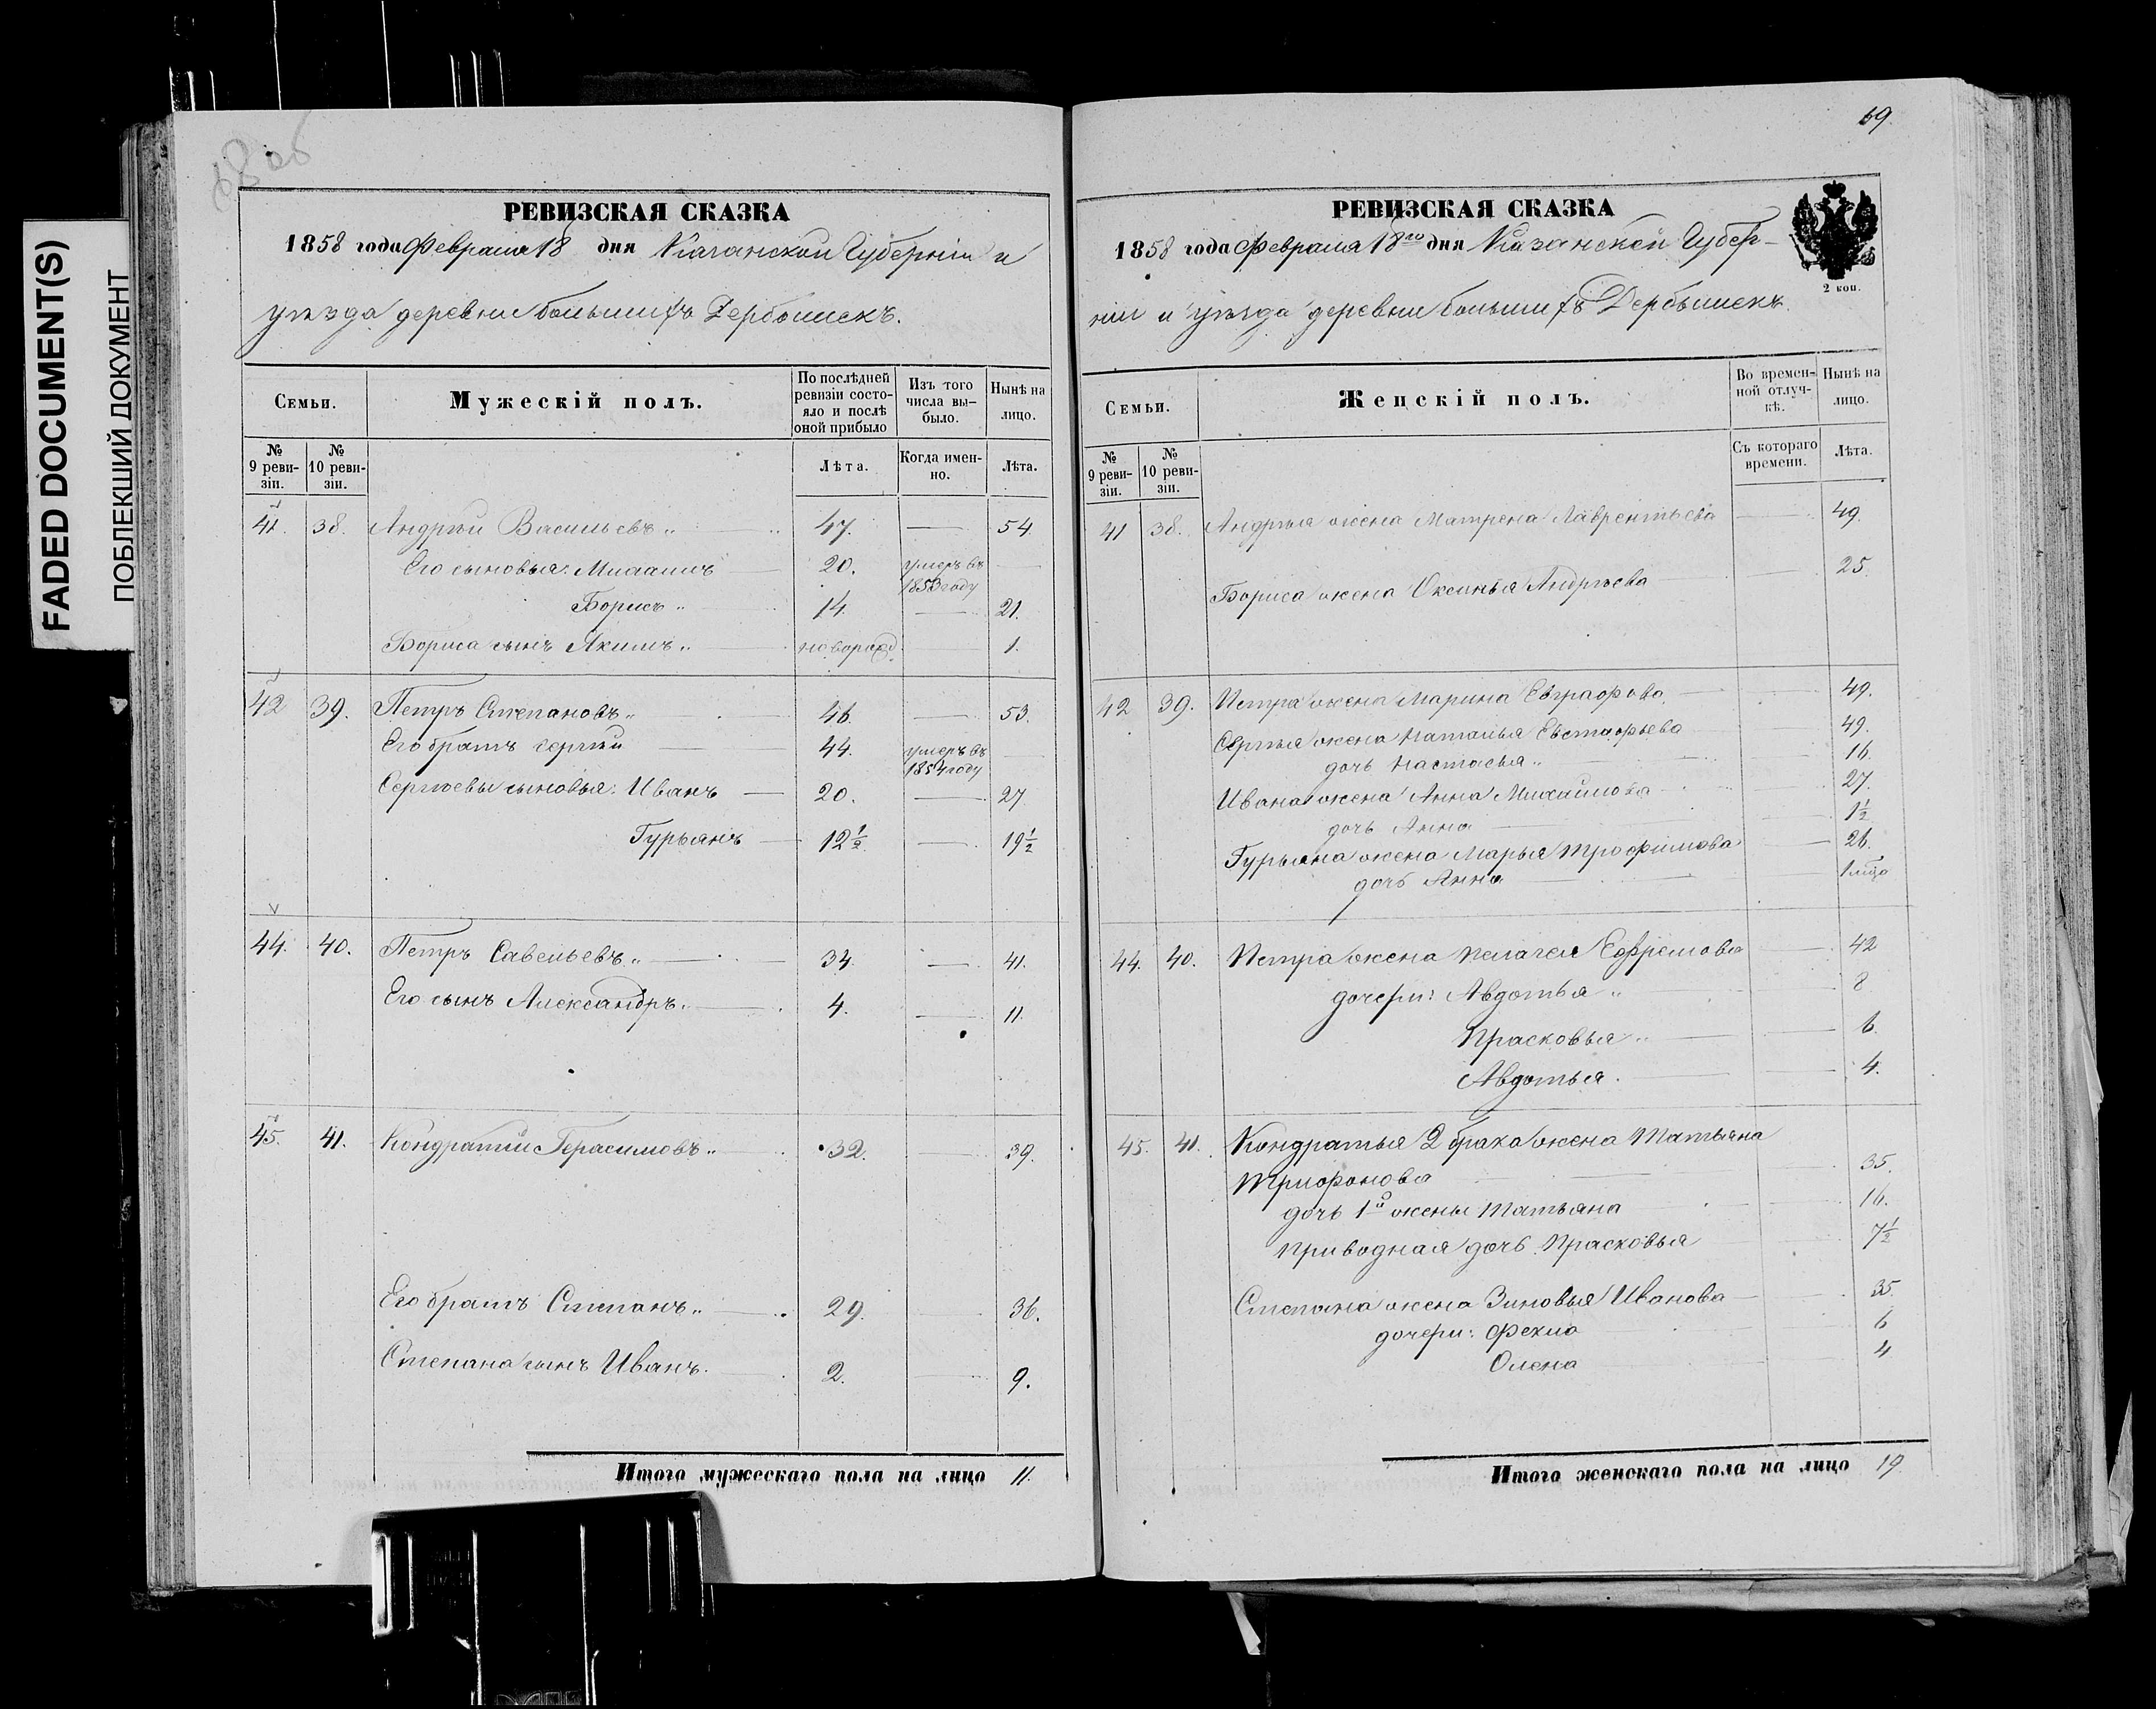 FADED DOCUMENT(S)
ПОБЛЕКШИЙ ДОКУМЕНТ
68 об
РЕВИЗСКАЯ СКАЗКА
1858 года Февраля 18 дня Казанской Губерніи и
уѣзда деревни большихъ Дербышекъ.
Семьи.
Мужескій полъ.
По послѣдней ревизіи состояло и послѣ оной прибыло
Изъ того числа выбыло.
Нынѣ на лицо.
№ 9 ревизіи.
№ 10 ревизіи.
Лѣта.
Когда именно.
Лѣта.
41. 38. Андрѣй Васильевъ „ 47. — 54.
Его сыновья: Михаилъ 20. умеръ въ 1853 году —
Борисъ „ 14. — 21.
Бориса сынъ Якимъ „ новорожд. 1.
42 39. Петръ Степановъ „ 46. — 53.
Его братъ Сергѣй 44. умеръ въ 1854 году —
Сергѣевы сыновья: Иванъ — 20. — 27.
Гурьянъ — 12½ — 19½
44. 40. Петръ Савельевъ „ — 34. — 41.
Его сынъ Александръ „ — 4. — 11.
45. 41. Кондратій Герасимовъ „ 32. — 39.
Его братъ Степанъ „ — 29. — 36.
Степана сынъ Иванъ. — 2. — 9.
Итого мужескаго пола на лицо 11.
69.
РЕВИЗСКАЯ СКАЗКА
1858 года Февраля 18го дня Казанской Губер-
ніи и уѣзда деревни большихъ Дербышекъ.
2 коп.
Семьи.
Женскій полъ.
Во временной отлучкѣ.
Нынѣ на лицо.
№ 9 ревизіи.
№ 10 ревизіи.
Съ котораго времени.
Лѣта.
41 38. Андрѣя жена Матрена Лаврентьева — 49.
Бориса жена Оксинья Андрѣева — 25.
42 39. Петра жена Марина Евграфова — 49.
Сергѣя жена Наталья Евстафьева 49.
дочь Настасья „ 16.
Ивана жена Анна Михайлова 27.
дочь Анна — 1½
Гурьяна жена Марья Трофимова — 26.
дочь Анна —
44. 40. Петра жена Пелагея Ефремова — 42
дочери: Авдотья „ 8
Прасковья „ — 6.
Авдотья. — 4.
45. 41. Кондратья 2 брака жена Татьяна
Трифонова — 35.
дочь 1й жены Татьяна 16.
приводная дочь Прасковья 7½
Степана жена Зиновья Иванова — 35.
дочери: Фекла 6
Олена 4
Итого женскаго пола на лицо 19.